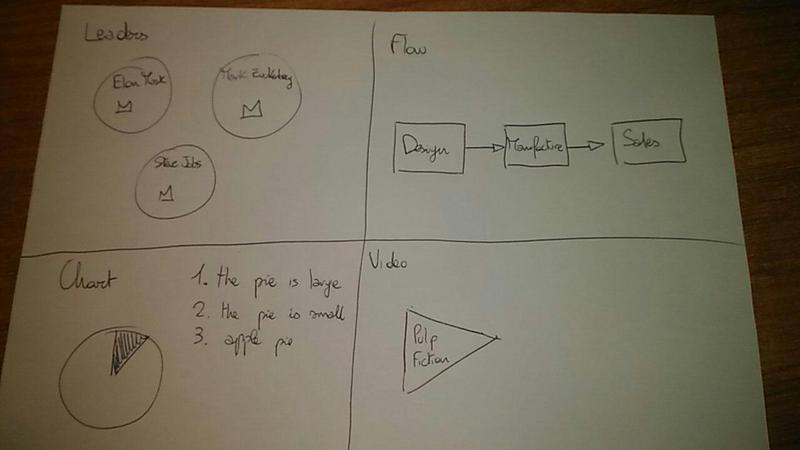 Leaders
Elon Musk
Mark Zuckerberg
Steve Jobs
Flow
Design
Manufacture
Sales
Chart
1. the pie is large
2. the pie is small
3. apple pie
Video
Pulp
Fiction